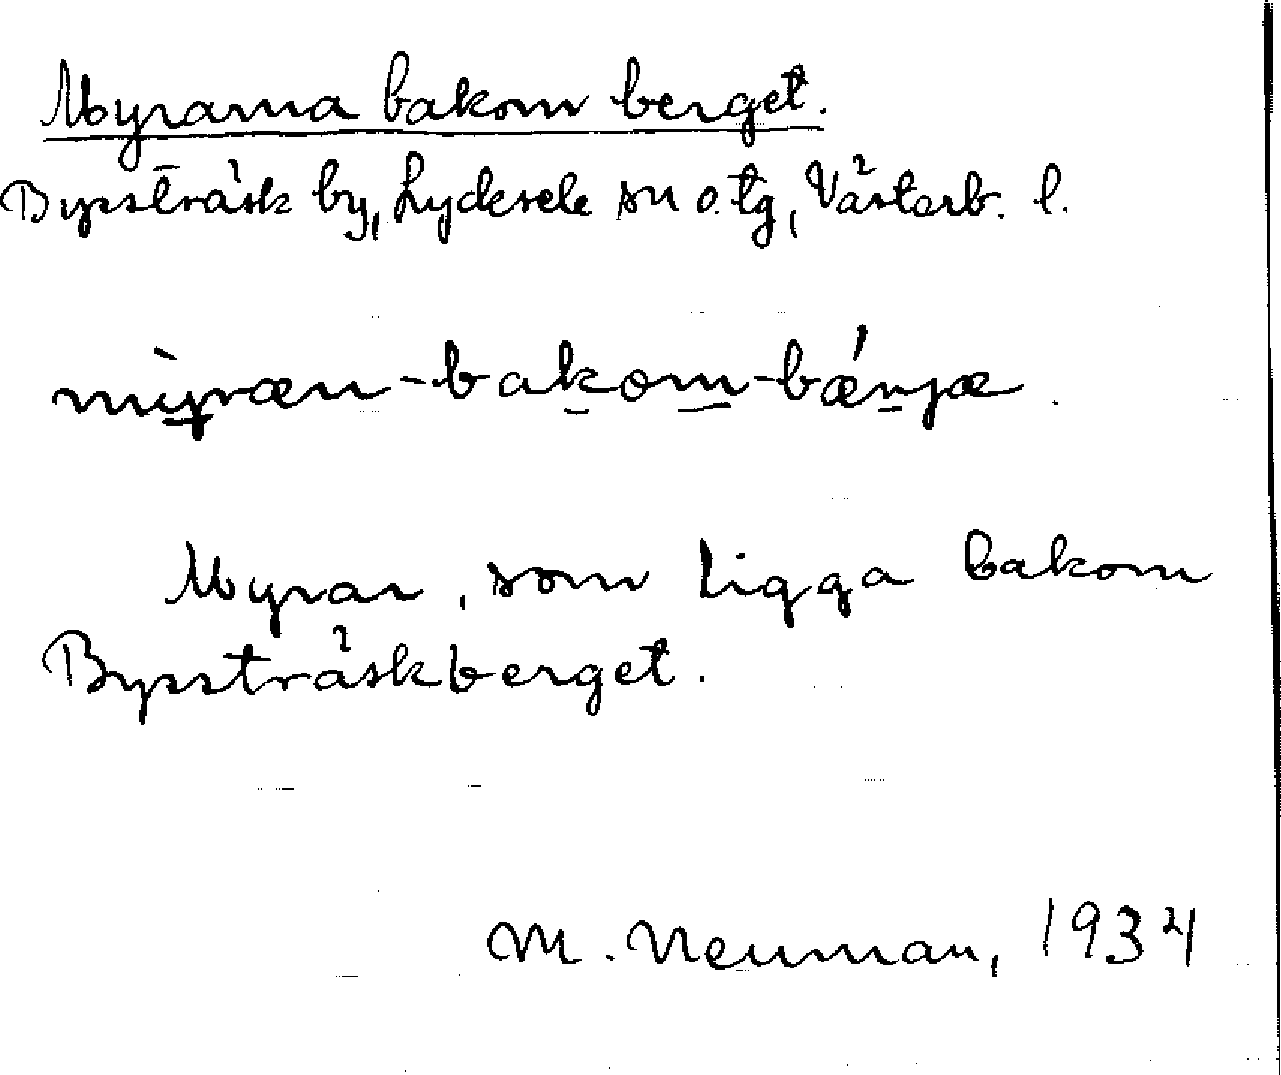 Myrarna bakom berget.
Bysströsk by, Lycksele sn o. tg, Västerb. l.
mỳræn-bakom-bǽrjæ.
Myrar, som ligga bakom
Byssträskberget.
M. Neuman, 1934